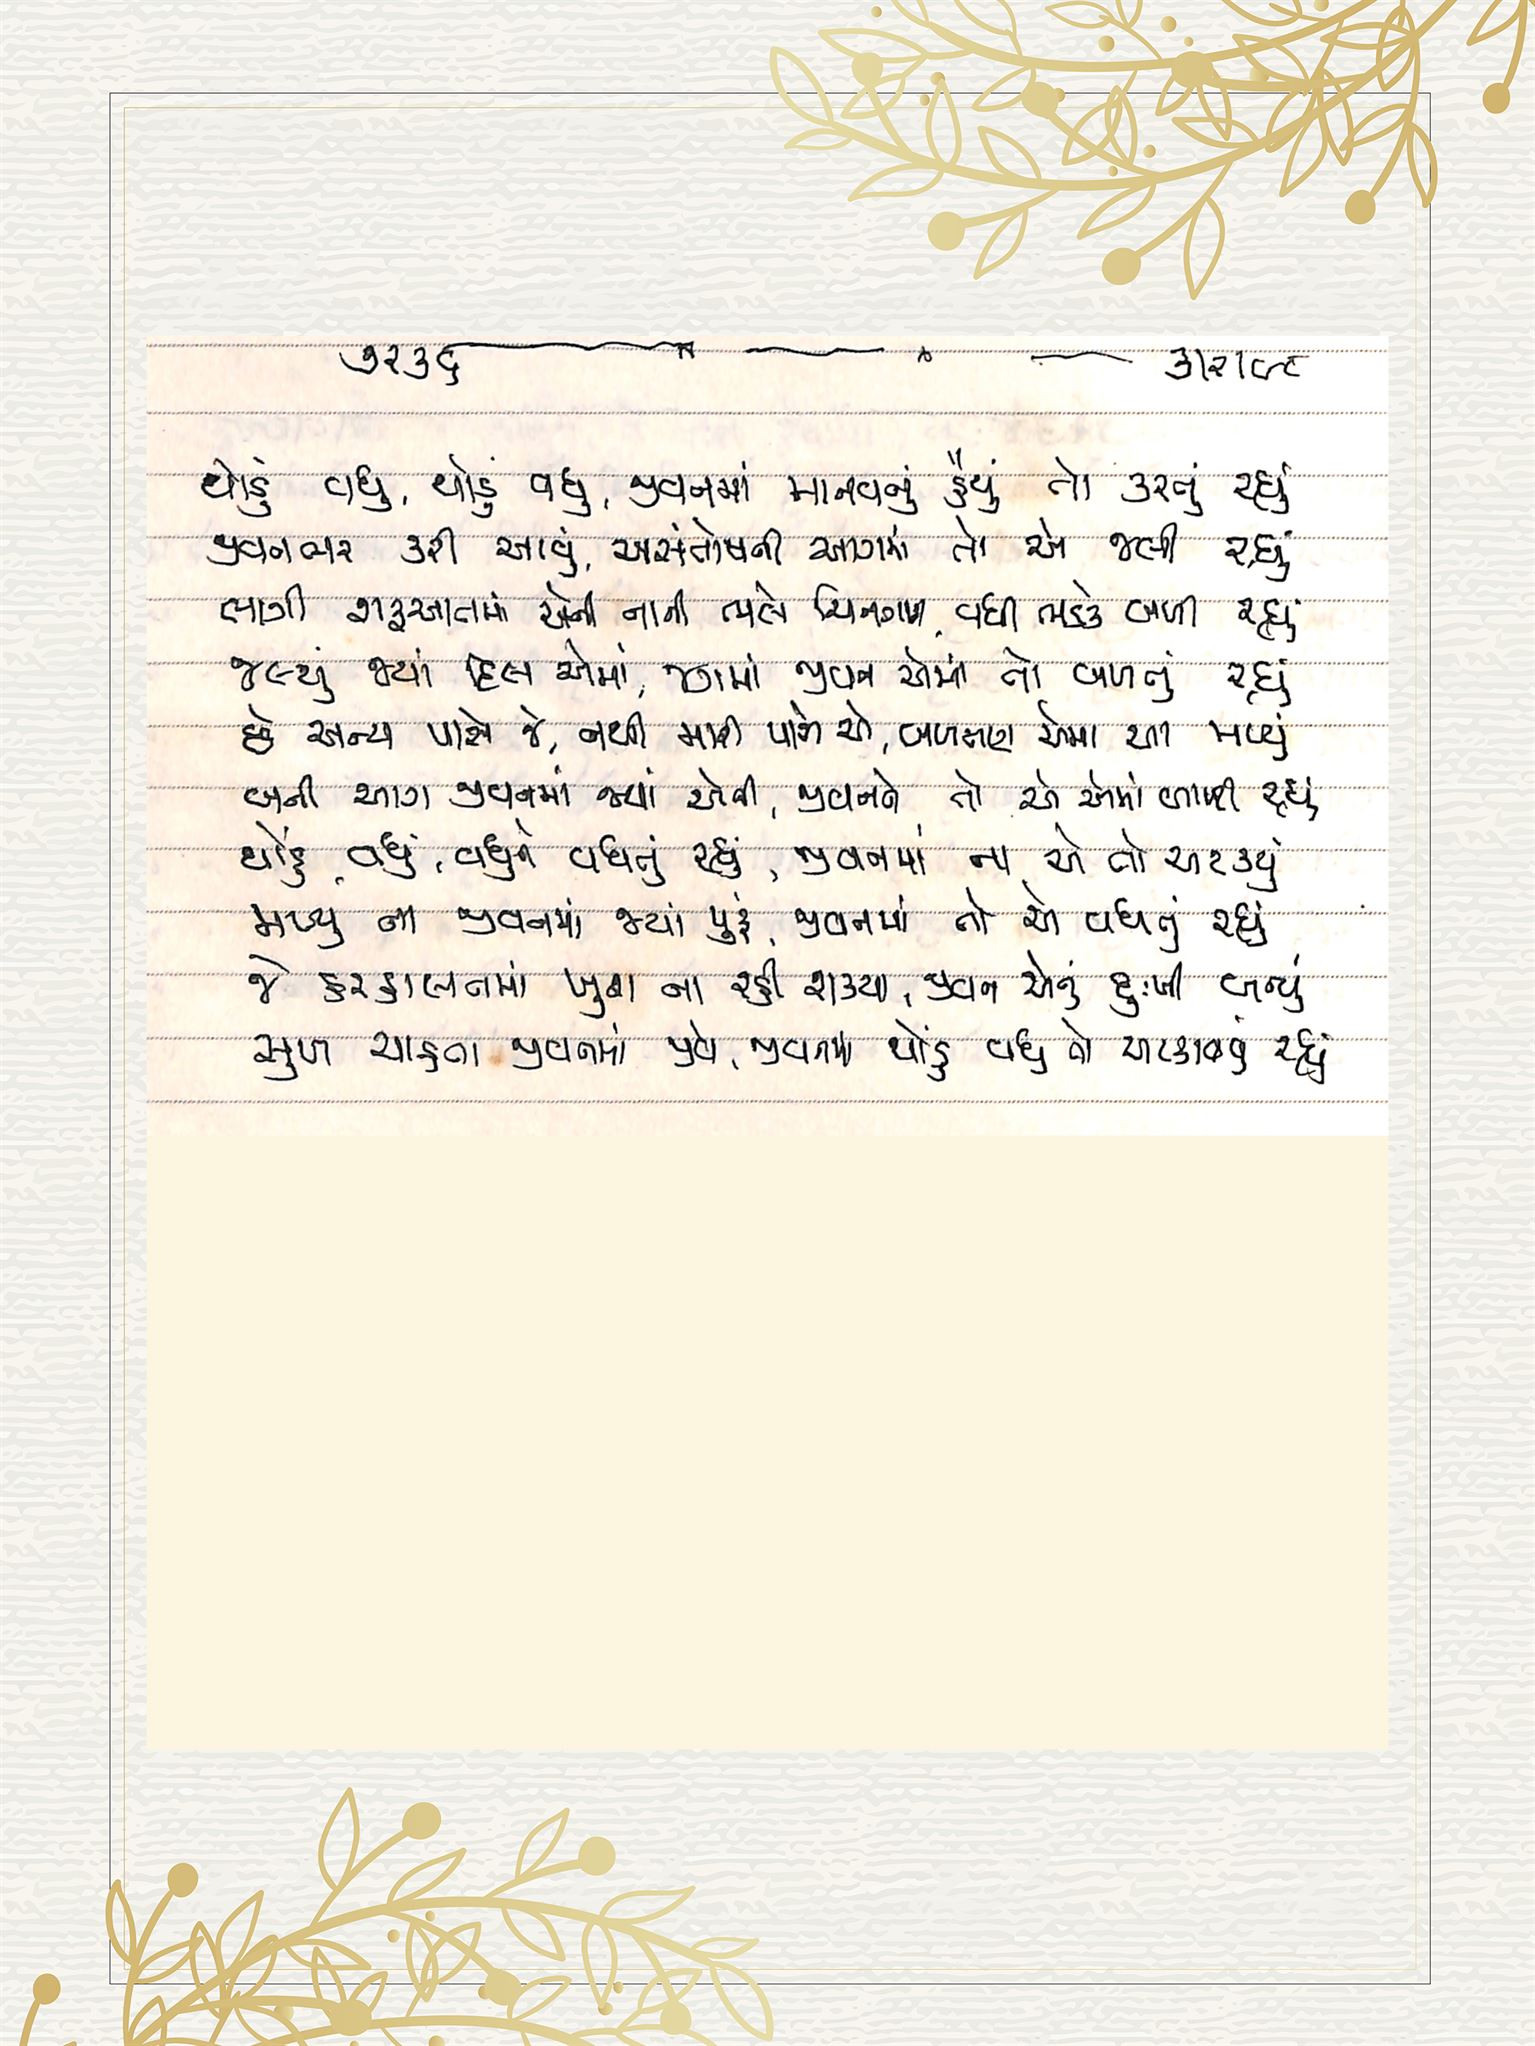 ૭૨૩૬ ૩|૨|૯૮
થોડું વધુ, થોડું વધુ, જીવનમાં માનવનું હૈયું તો કરતું રહ્યું
જીવનભર કરી આવું, અસંતોષની આગમાં તો એ જલી રહ્યું
લાગી શરૂઆતમાં એની નાની ભલે ચિનગારી, વધી ભડકે બળી રહ્યું
જલ્યું જ્યાં દિલ એમાં, જગમાં જીવન એમાં તો બળતું રહ્યું
છે અન્ય પાસે જે, નથી મારી પાસે એ, બળતરા એમા આ મળ્યું
બની આગ જીવનમાં જ્યાં એવી, જીવનને તો એ એમાં બાળી રહ્યું
થોડું વધું, વધુને વધતું રહ્યું, જીવનમાં ના એ તો અટક્યું
મળ્યુ ના જીવનમાં જ્યાં પુરૂં, જીવનમાં તો એ વધતું રહ્યું
જે હરહાલતમાં ખુશ ના રહી શક્યા, જીવન એનું દુઃખી બન્યું
સુખ ચાહતા જીવનમાં જીવે, જીવનમાં થોડું વધુ તો અટકાવતું રહ્યું